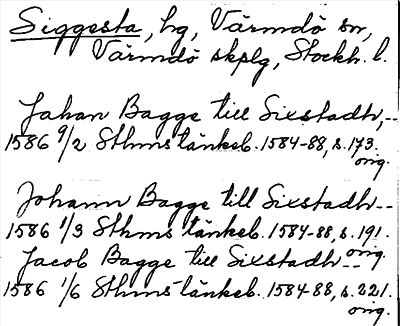 Siggesta, hg, Värmdö sn,
Värmdö skplg, Stockh. l.
Jahan Bagge till Sixstadh,--
1586 9/2 Sthms tänkeb. 1584-88, s. 173.
orig.
Johann Bagge till Sixstadh--
1586 1/3 Sthms tänkeb. 1584-88, s. 191.
orig.
Jacob Bagge till Sixstadh--
1586 1/6 Sthms tänkeb. 1584-88, s. 221.
orig.